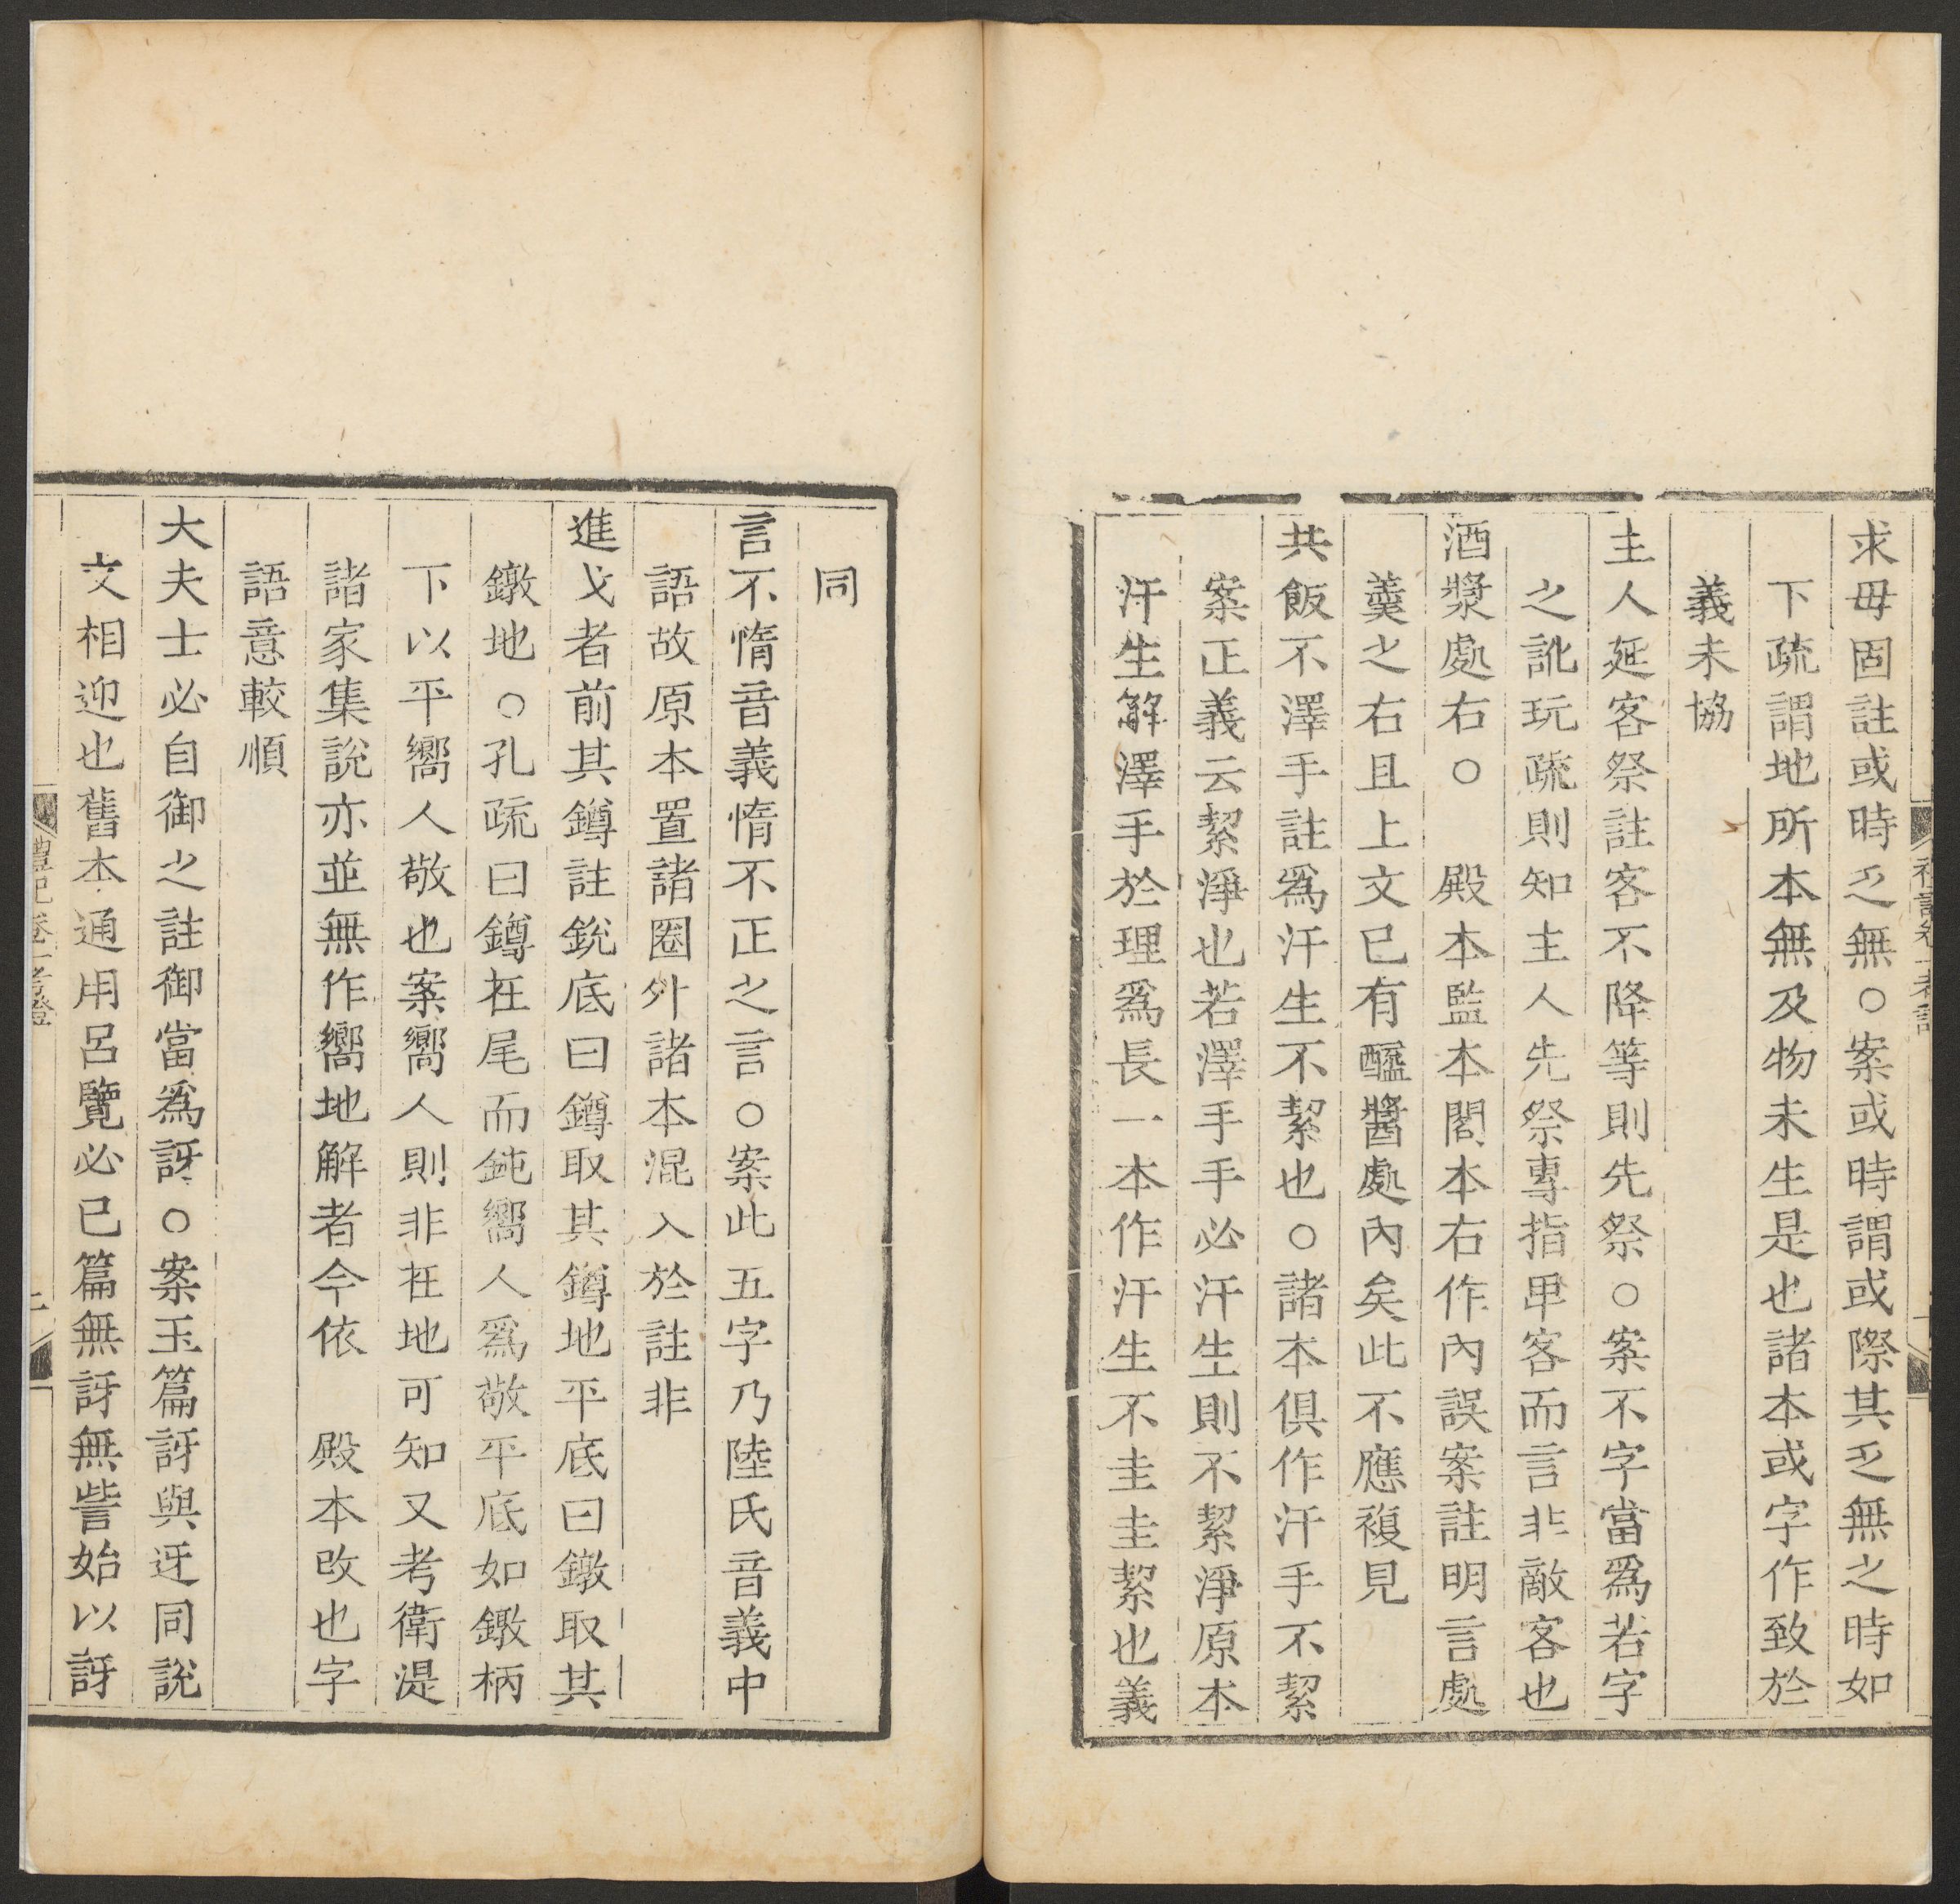 求毋固註或時乏無○案或時謂或際其乏無之時如
下疏謂地所本無及物未生是也諸本或字作致於
義未協
主人延客祭註客不降等則先祭○案不字當爲若字
之訛玩疏則知主人先祭專指卑客而言非敵客也
酒漿處右○　殿本監本閣本右作內誤案註明言處
羹之右且上文已有醯醬處內矣此不應複見
共飯不澤手註爲汗生不絜也○諸本俱作汗手不絜
案正義云絜淨也若澤手手必汗生則不絜淨原本
汗生解澤手於理爲長一本作汗生不圭圭絜也義
同
言不惰音義惰不正之言○案此五字乃陸氏音義中
語故原本置諸圈外諸本混入於註非
進戈者前其鐏註銳底曰鐏取其鐏地平底曰鐓取其
鐓地○孔疏曰鐏在尾而鈍嚮人爲敬平底如鐓柄
下以平嚮人敬也案嚮人則非在地可知又考衛湜
諸家集說亦並無作嚮地解者今依　殿本改也字
語意較順
大夫士必自御之註御當爲訝○案玉篇訝與迓同說
文相迎也舊本通用呂覽必已篇無訝無訾始以訝
禮記卷一考證